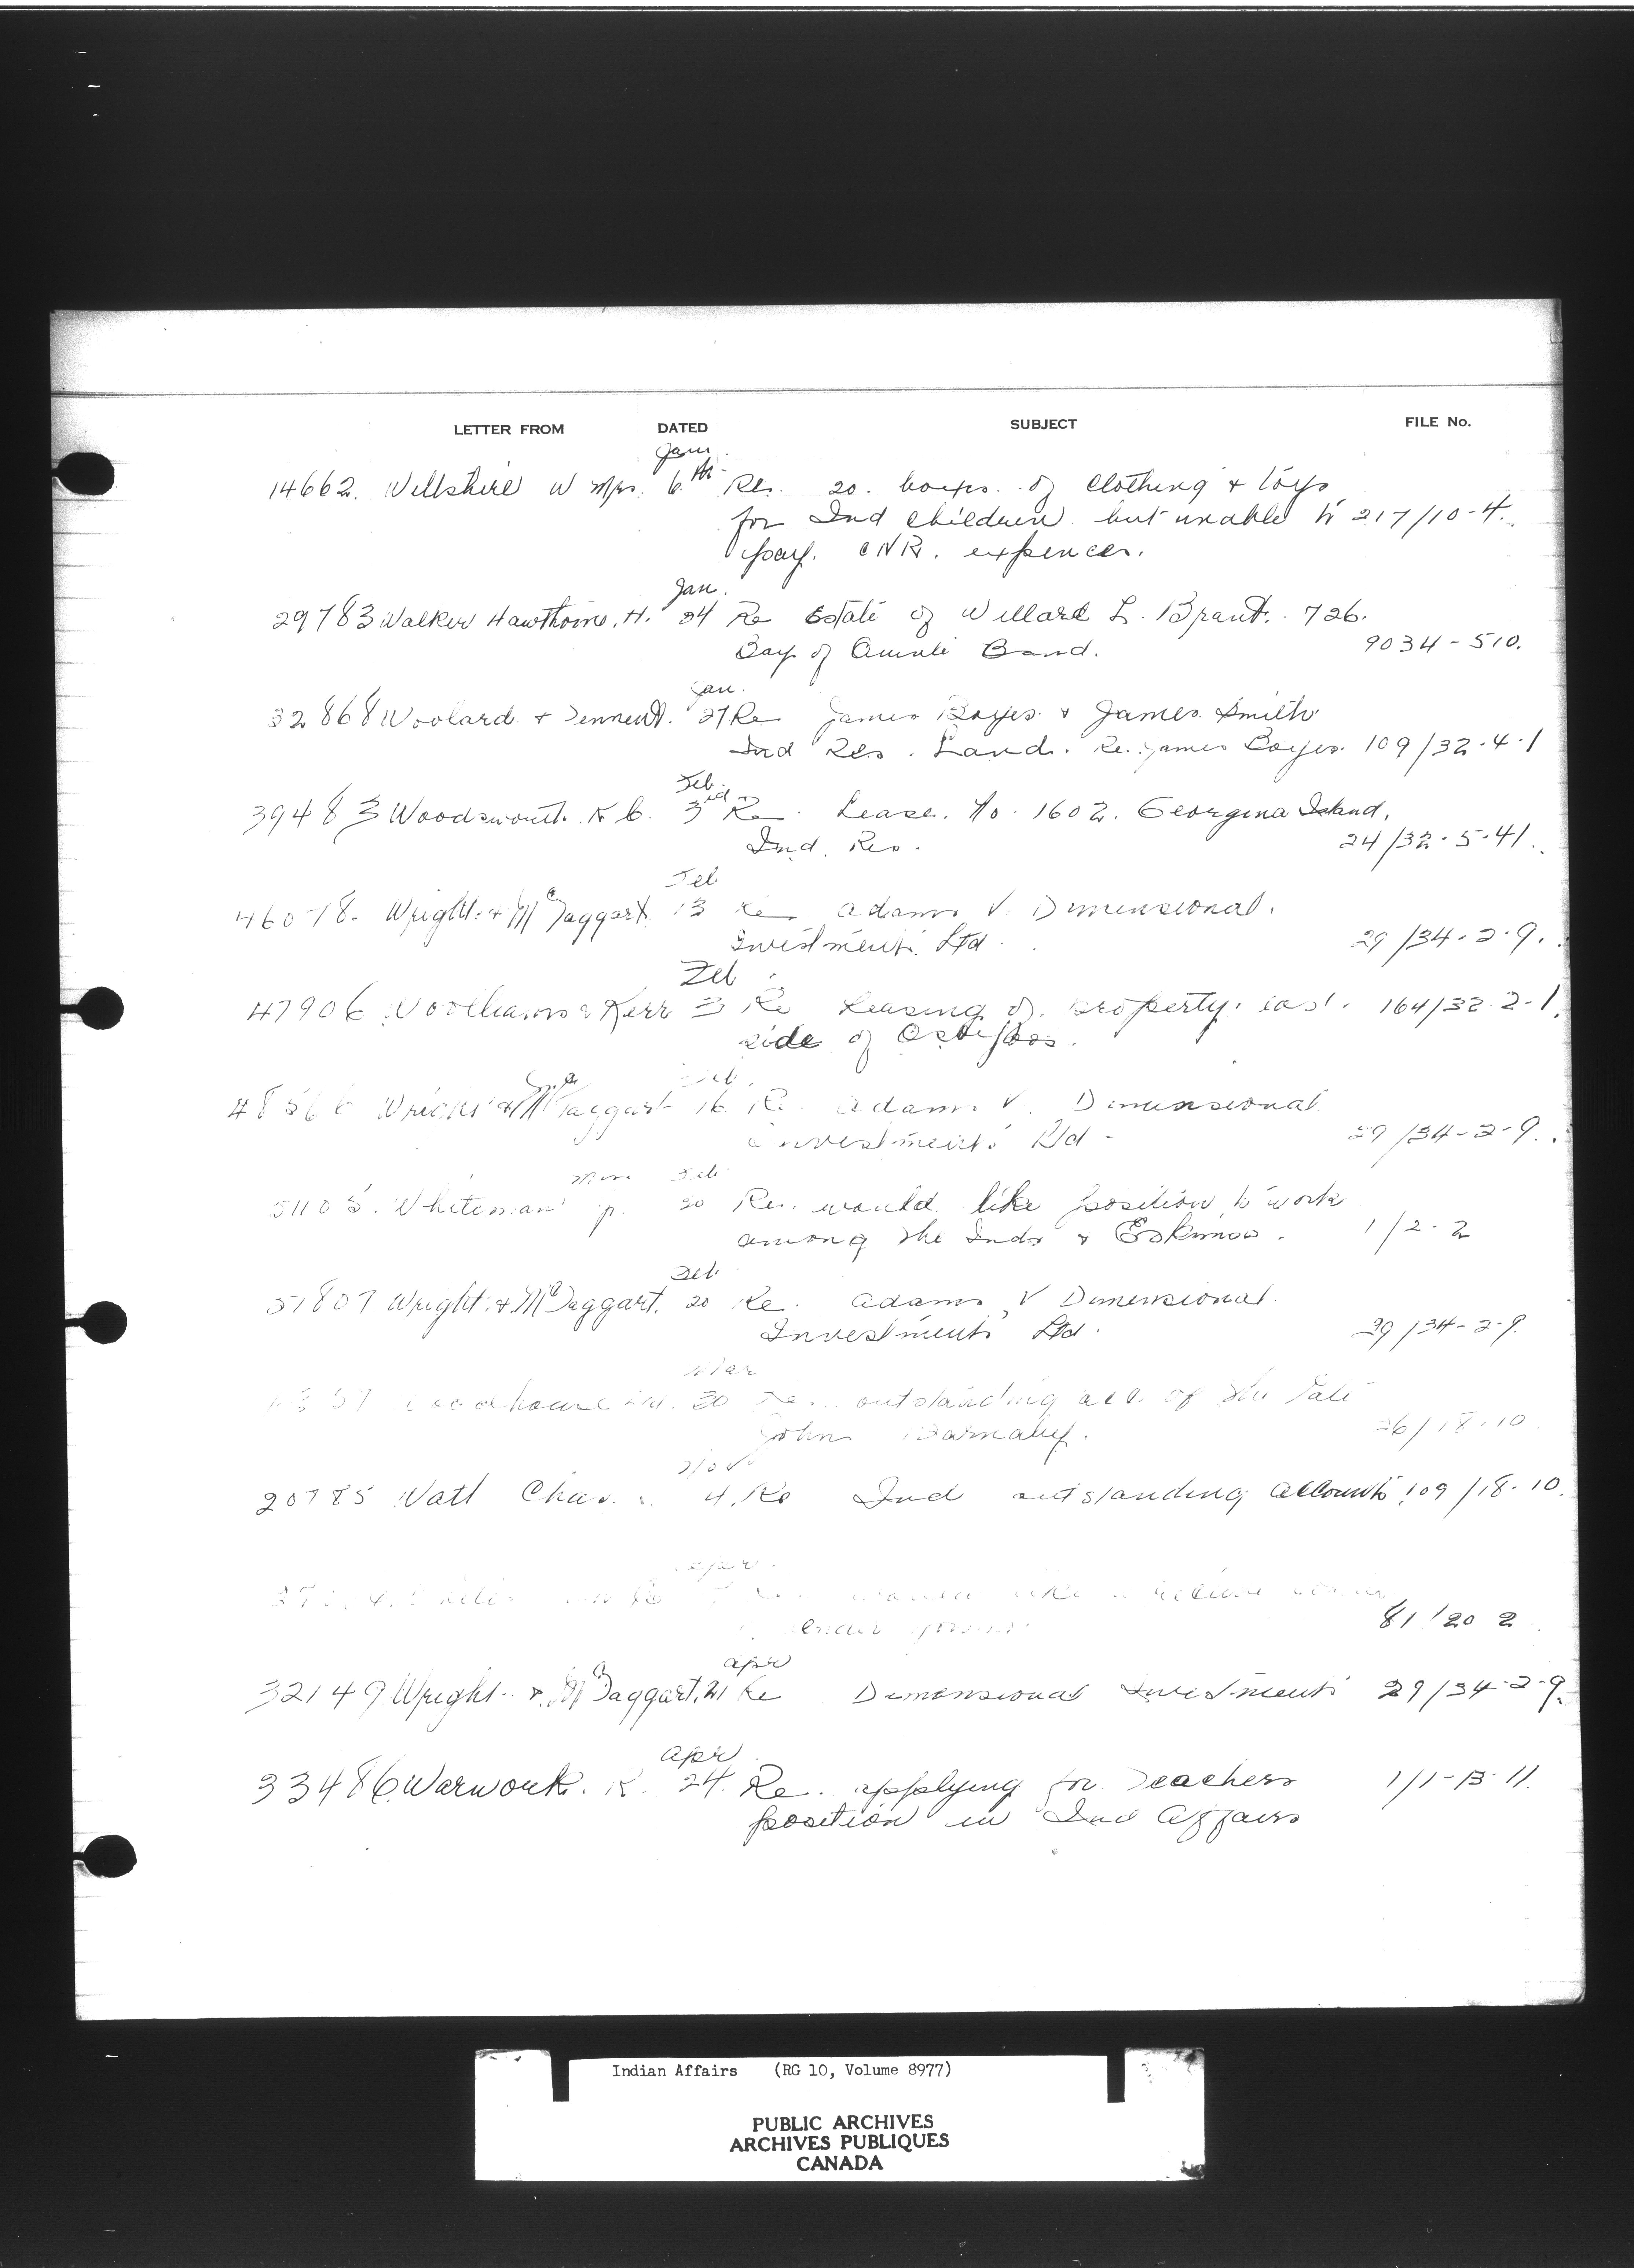 LETTER FROM DATED SUBJECT FILE No.
Jan.
14662. Willshire W Mrs. 6th Re. 20. boxes. of clothing & toys
for Ind children. but unable to 217/10-4.
pay. CNR. expences.
Jan.
29783 Walker Hawthorne, H. 24 Re Estate of Willard L. Brant. 726.
Bay of Quinte Band. 9034-510.
Jan.
32868 Woolard & Tennent. 27 Re James Boyes & James Smith
Ind Res. Land. Re. James Boyes. 109/32.4.1
Feb.
39483 Woodsworth. K 3rd Re. Lease. No. 1602. Georgina Island,
Ind. Res. 24/32.5.41.
Feb
46078. Wright. & McTaggart. 13 Re Adams V. Dimensional.
Investments Ltd. 29/34.2.9.
Feb
47906 Woolliams & Kerr 3 Re Leasing of. property. east. 164/32 2-1.
side of
Feb.
Wright & McTaggart 16 Re. Adams V. Dimensional
Investments Ltd - 29/34-2-9.
Mrs Feb
51105. Whiteman p. 20 Re. would like position to work
among the Inds & Eskimos. 1/2.2
Feb
51807 Wright. & McTaggart. 20 Re. Adams V Dimensional.
Investments Ltd. 29/34-2-9.
Mar
30 Re. outstanding acc of the late
John Barnaby. 26/18.10
Nov
20785 Watt Chas. 4. Re Ind outstanding accounts 109/18.10.
Apr.
would like
81/20 2
Apr
32149 Wright. & McTaggart. 21 Re Dimensional Investments 29/34-2-9.
Apr
33486 Warwork. R. 24. Re. applying for Teachers 1/1-13.11.
position in Ind Affairs
Indian Affairs (RG 10, Volume 8977)
PUBLIC ARCHIVES
ARCHIVES PUBLIQUES
CANADA